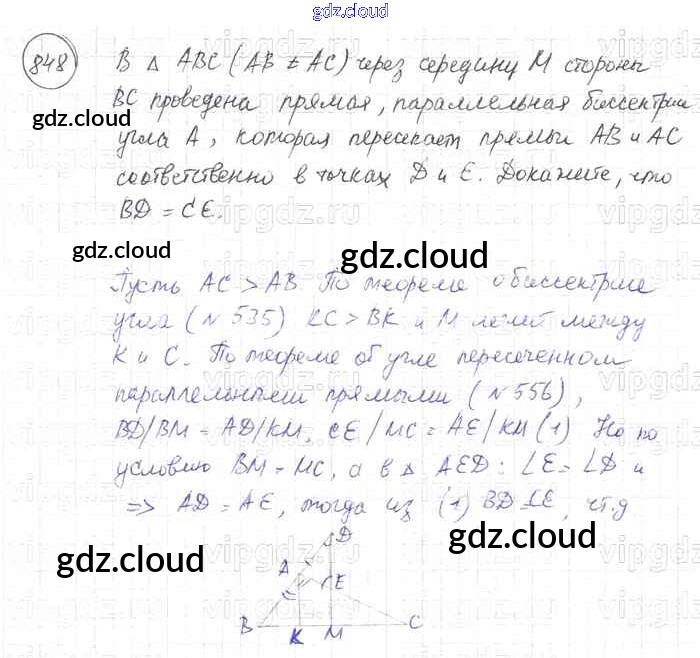 gdz.cloud
848 В Δ ABC (AB ≠ AC) через середину M стороны
BC проведена прямая, параллельная биссектрисе
угла A, которая пересекает прямые AB и AC
gdz.cloud
соответственно в точках D и E. Докажите, что
BD = CE.
gdz.cloud
gdz.cloud
Пусть AC > AB По теореме о биссектрисе
угла (№ 535) KC > BK и M лежит между
K и C. По теореме об угле пересеченном
параллельными прямыми (№ 556),
BD/BM = AD/KM, CE/MC = AE/KM (1) Но по
условию BM = MC, а в Δ AED: ∠E = ∠D и
=> AD = AE, тогда из (1) BD = CE, чт.д
gdz.cloud
gdz.cloud
D
A
E
B
K
M
C
gdz.cloud
gdz.cloud